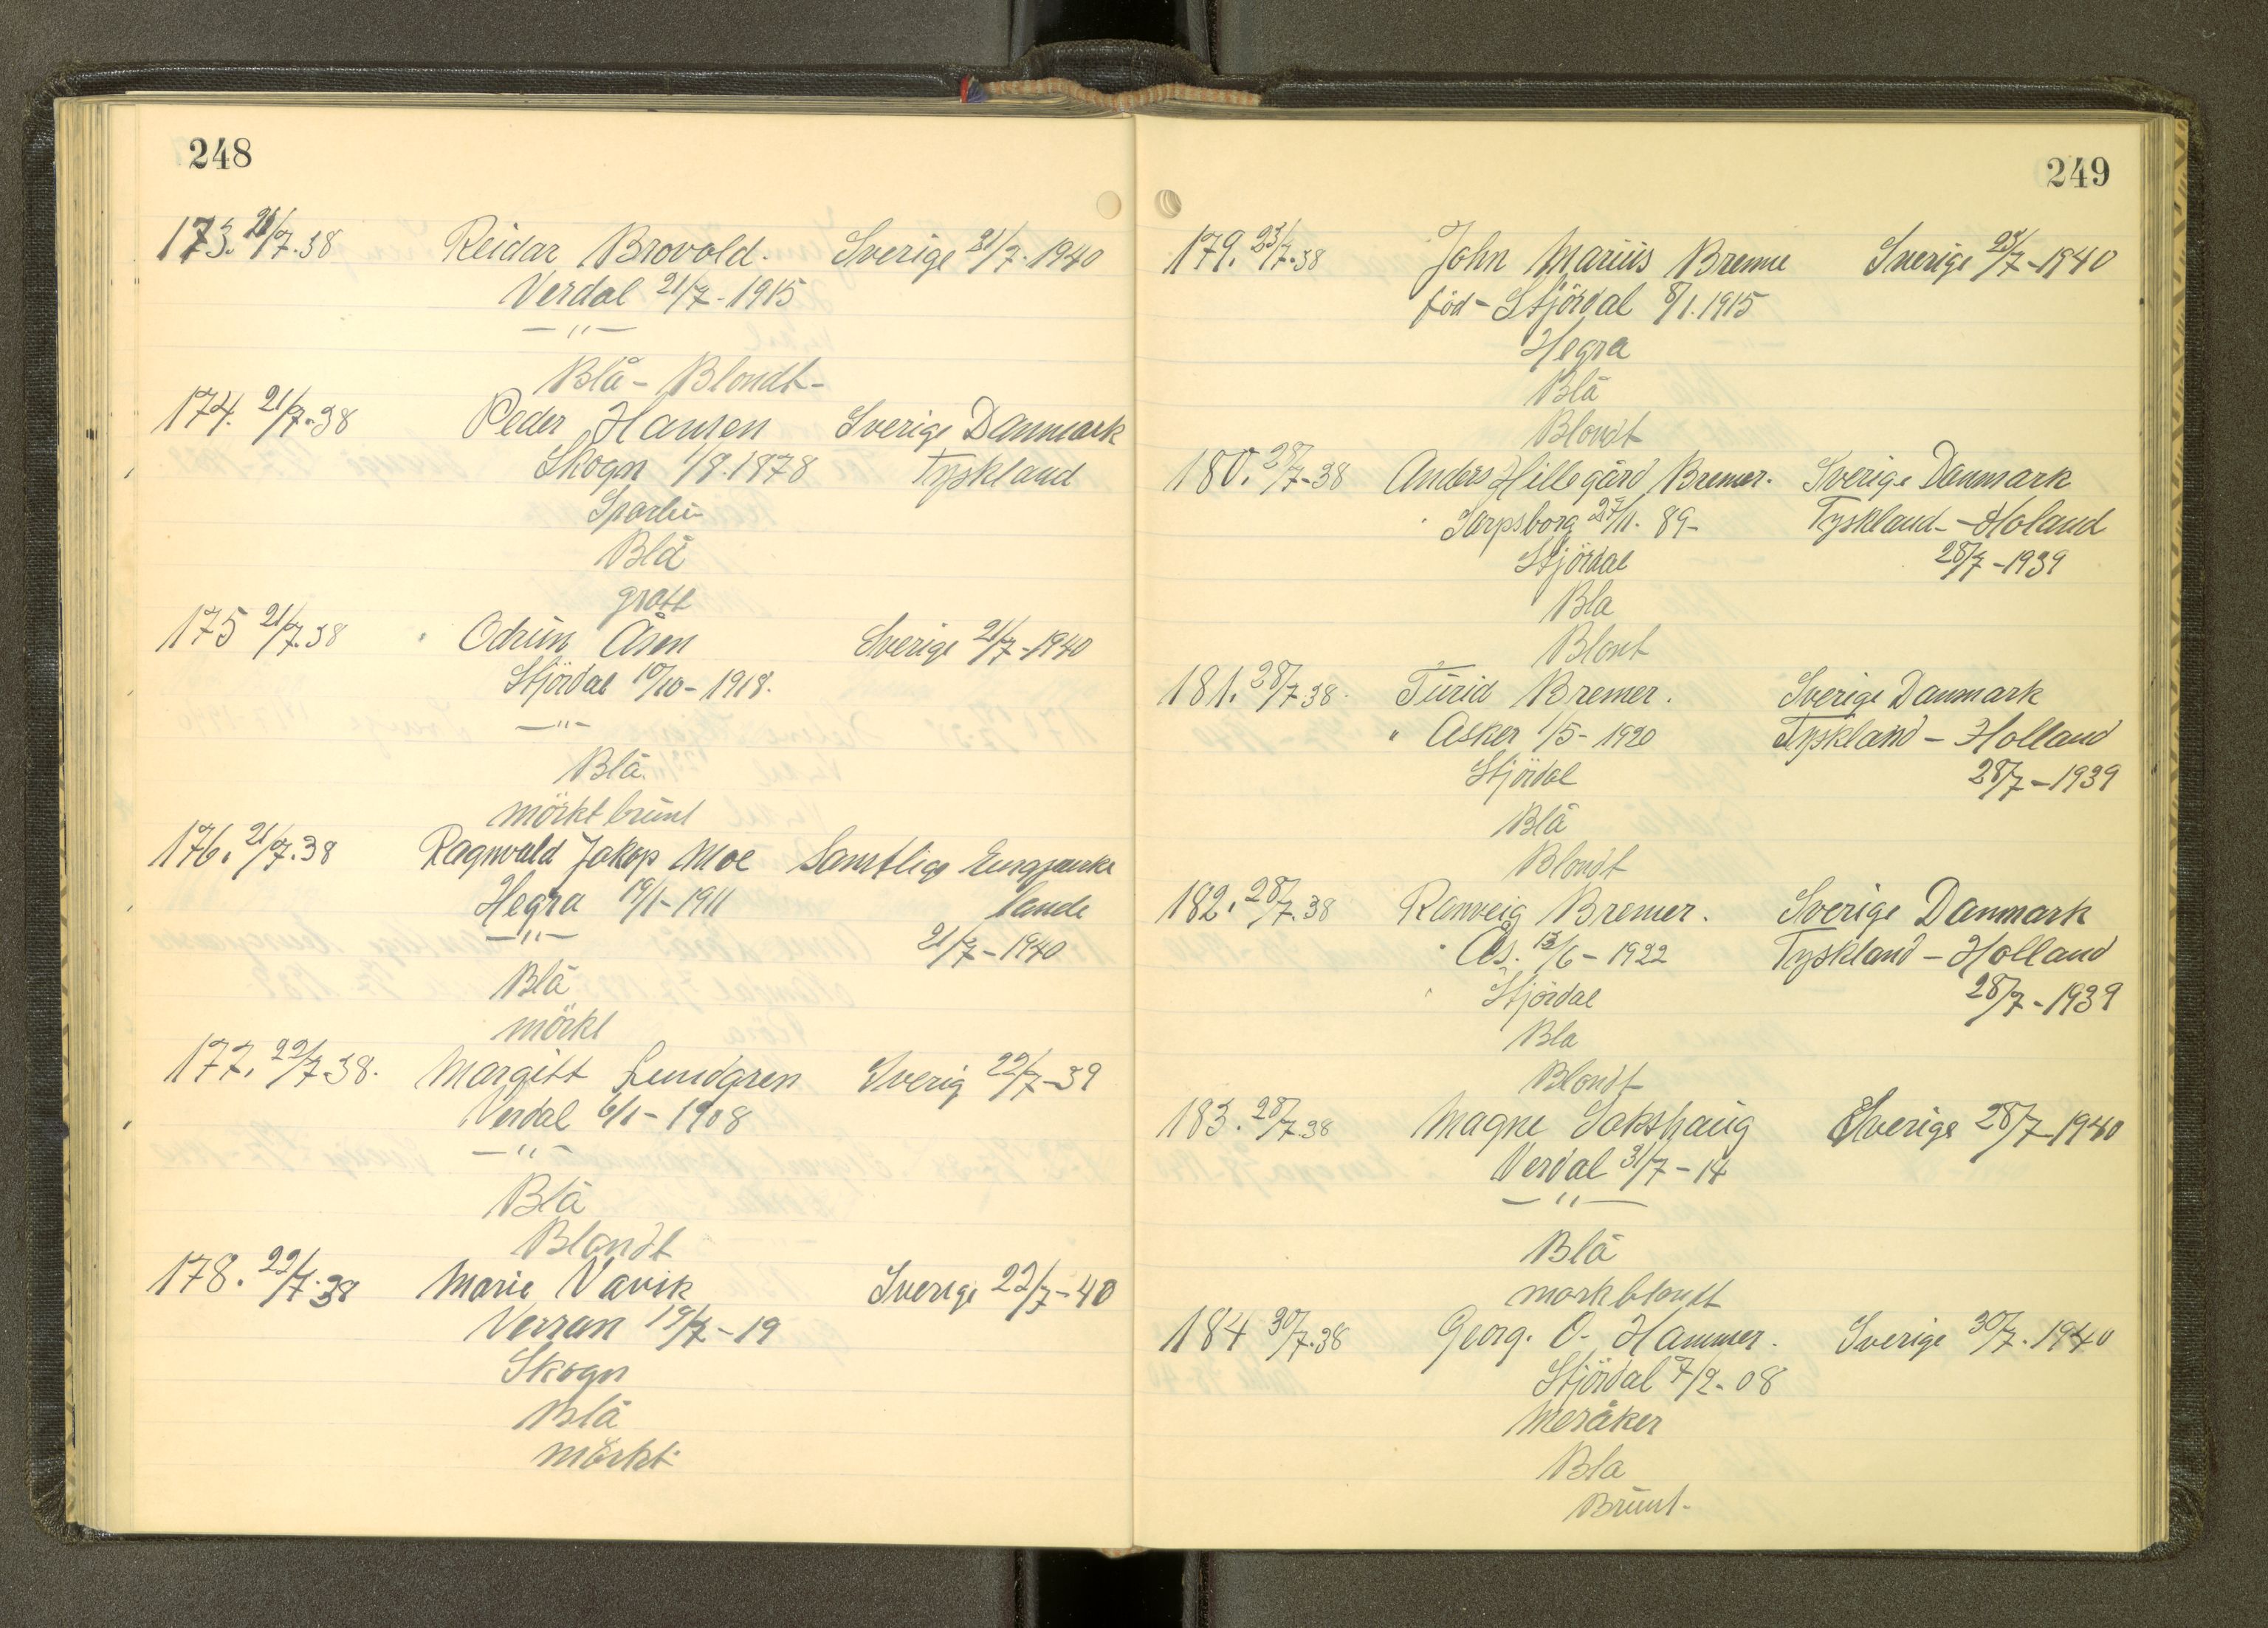 248
173. 21/7.38 Reidar Brovold. Sverige 21/7.1940
Verdal 21/7-1915
—"—
Blå - Blondt-
174. 21/7.38 Peder Hansen Sverige Danmark
Skogn 1/8.1878 Tyskland
Sparbu
Blå
grått
175 21/7.38 Odrun Åsen Sverige 21/7-1940
Stjördal 10/10-1918.
—"—
Blå.
mörkt brunt
176. 21/7.38 Ragnvald Jakop Moe Samtlige Europeiske
Hegra 19/1-1911 lande
—"— 21/7-1940
Blå
mörkt
177. 22/7.38. Margitt Lundgren Sverig 22/7-39
Verdal 6/1-1908
—"—
Blå
Blondt
178. 22/7.38 Marie Vavik Sverige 22/7-40
Verran 19/7-19
Skogn
Blå
mörkt
249
179. 23/7.38 John Marius Brenne Sverige 23/7-1940
föd- Stjördal 8/1.1915
Hegra
Blå
Blondt
180. 28/7-38 Anders Hillegård Bremer. Sverige Danmark
Sarpsborg 27/11. 89- Tyskland - Holand
Stjördal 28/7-1939
Bla
Blont
181. 28/7.38. Turid Bremer. Sverige Danmark
" Asker 1/5-1920 Tyskland - Holland
Stjördal 28/7-1939
Blå
Blondt
182. 28/7.38 Ranveig Bremer. Sverige Danmark
Ås. 13/6-1922 Tyskland - Holland
Stjördal 28/7-1939
Bla
Blondt
183. 28/7.38 Magne Sakshaug Sverige 28/7-1940
Verdal 31/7-14
—"—
Blå
mork blondt
184 30/7.38 Georg. O. Hammer. Sverige 30/7.1940
Stjördal 7/2-08
Meråker
Bla
Brunt-